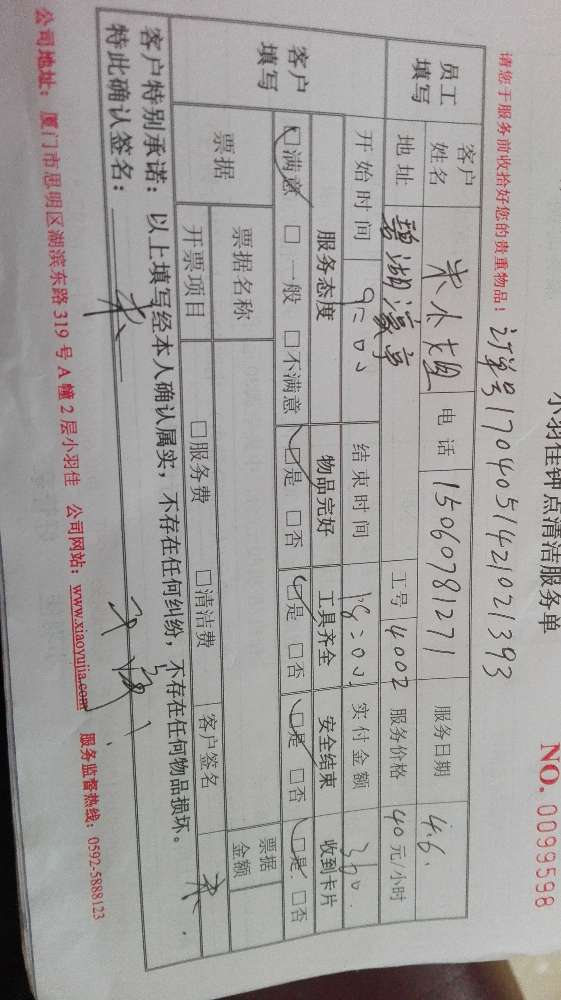 小羽佳钟点清洁服务单
NO. 0099598
订单号170405142021393
请您于服务前收拾好您的贵重物品!
员工填写 客户姓名 电话 15060781271 服务日期 4.6.
地址 碧湖豪亭 工号 4002 服务价格 40元/小时
客户填写 开始时间 9:00 结束时间 18:00 实付金额 360.
服务态度 物品完好 工具齐全 安全结束 收到卡片
☑满意 □一般 □不满意 ☑是 □否 ☑是 □否 ☑是 □否 ☑是 □否
票据 票据名称 票据金额
开票项目 □服务费 □清洁费 客户签名
客户特别承诺:以上填写经本人确认属实,不存在任何纠纷,不存在任何物品损坏。
特此确认签名:
公司地址:厦门市思明区湖滨东路319号A幢2层小羽佳 公司网站:www.xiaoyujia.com 服务监督热线:0592-5888123